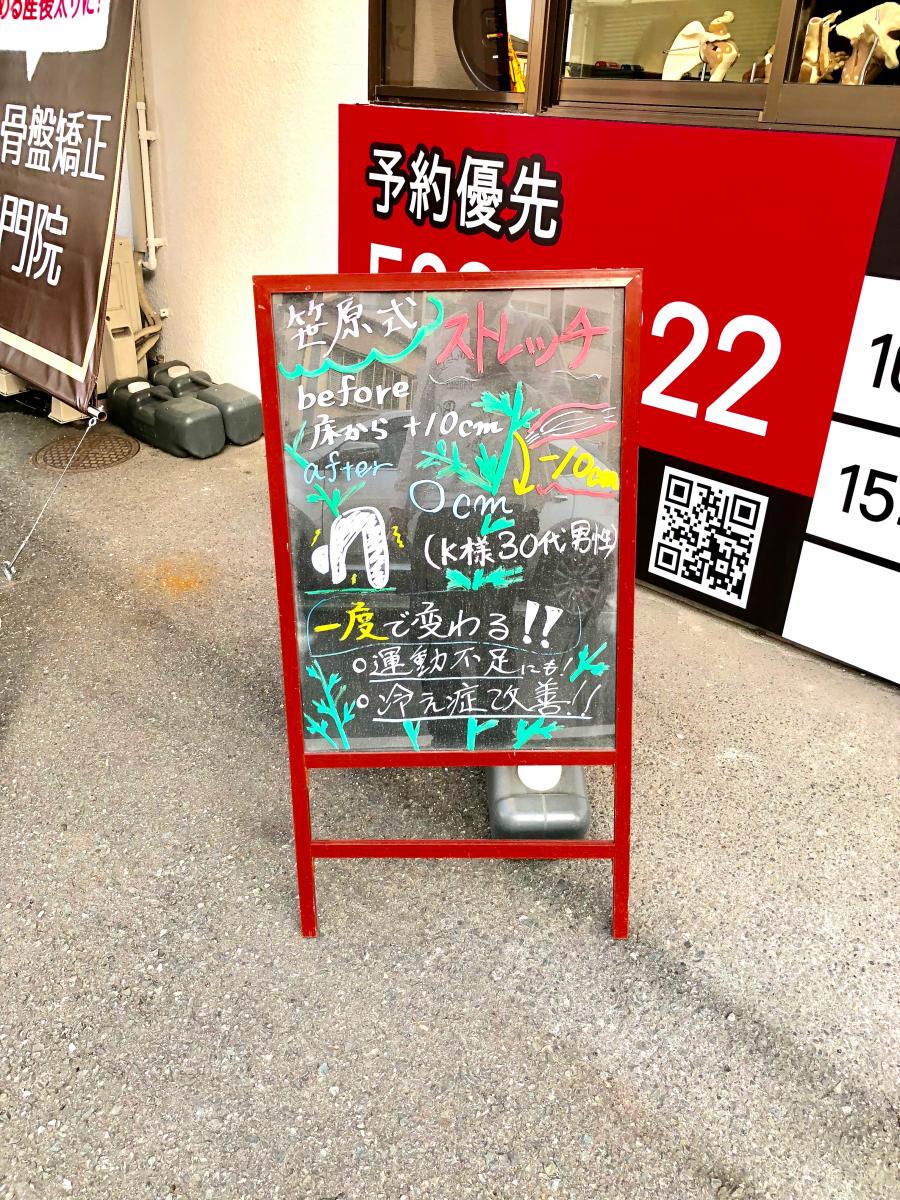 める産後太りに!
骨盤矯正
門院
予約優先
22
10
15
笹原式 ストレッチ
before
床から +10cm
-10cm
after
0cm
(K様30代男性)
一度で変わる!!
○運動不足にも!
○冷え症改善!!